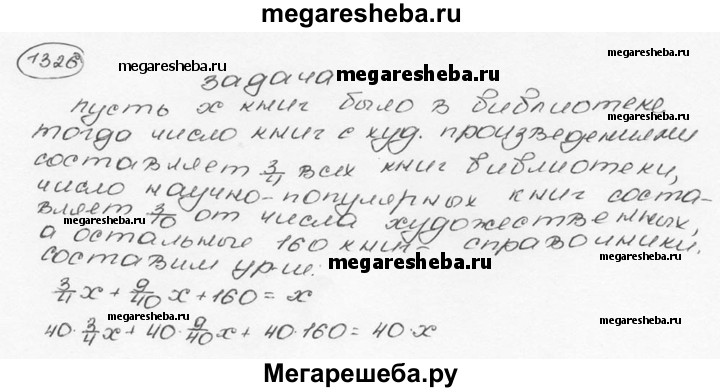 megaresheba.ru
1326
megaresheba.ru
задача megaresheba.ru
пусть x книг было в библиотеке,
тогда число книг с худ. произведениями
составляет 3/4 всех книг библиотеки,
число научно-популярных книг соста-
вляет 3/10 от числа художественных,
megaresheba.ru
а остальные 160 книг справочники.
составим ур-ие: megaresheba.ru
3/4 x + 9/40 x + 160 = x
megaresheba.ru
40 · 3/4 x + 40 · 9/40 x + 40 · 160 = 40 · x
Мегарешеба.ру